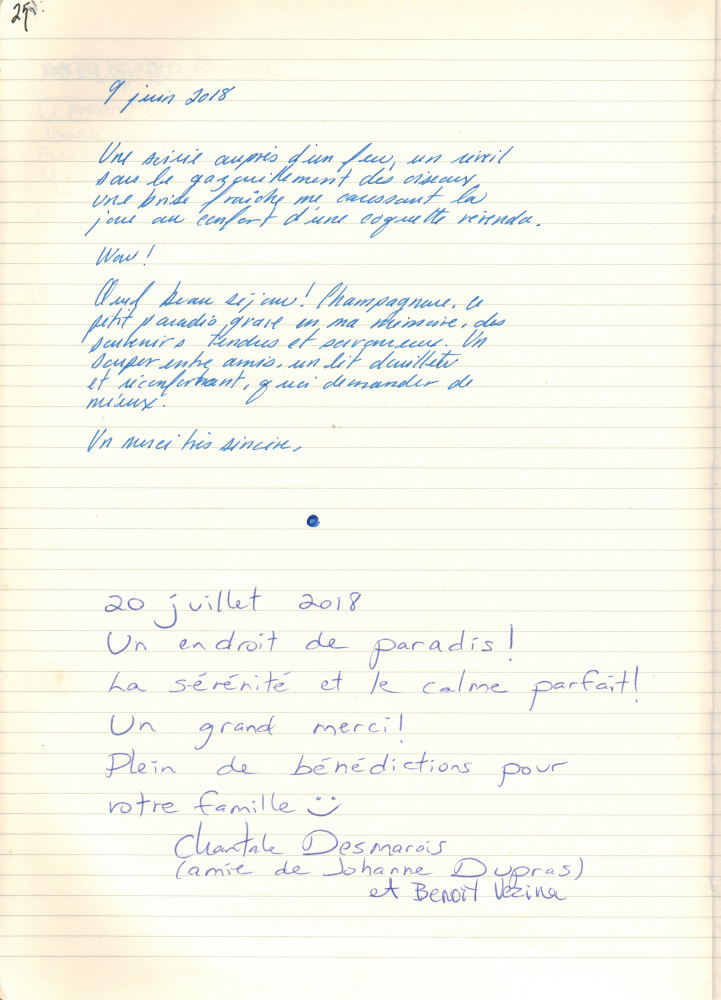 25
9 juin 2018
Une soirée auprès d'un feu, un réveil
sous le gazouillement des oiseaux
une brise fraîche me caressant la
joue au confort d'une coquette véranda.
Wow!
Quel beau séjour! Champagneure, ce
petit paradis, grave en ma mémoire, des
souvenirs tendres et savoureux. Un
souper entre amis, un lit douillet
et réconfortant, quoi demander de
mieux.
Un merci très sincère,
20 juillet 2018
Un endroit de paradis!
La sérénité et le calme parfait!
Un grand merci!
Plein de bénédictions pour
votre famille
Chantale Desmarais
(amie de Johanne Dupras)
et Benoit Vézina